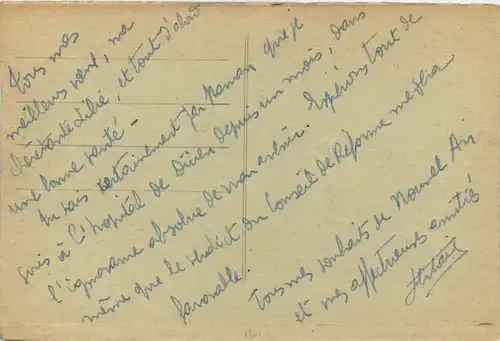 Tous mes
meilleurs vœux, ma
chère tante Lilie, et tout d'abord
une bonne santé –
Tu sais certainement par Maman que je
suis à l'hôpital de Düren depuis un mois, dans
l'ignorance absolue de mon avenir. Espérons tout de
même que le verdict du Conseil de Réforme me sera
favorable.
Tous mes souhaits de Nouvel An
et mes affectueuses amitiés